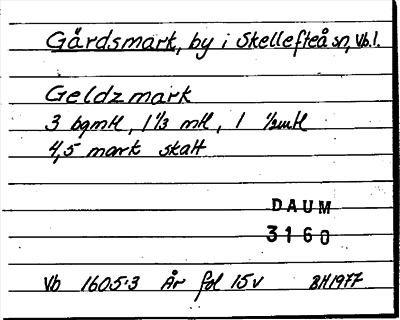 Gårdsmark, by i Skellefteå sn, Vb.l.
Geldzmark
3 bgmtl, 1 1/3 mtl, 1 1/2mtl
4,5 mark skatt
DAUM
3160
Vb 1605:3 År fol 15v BH1977